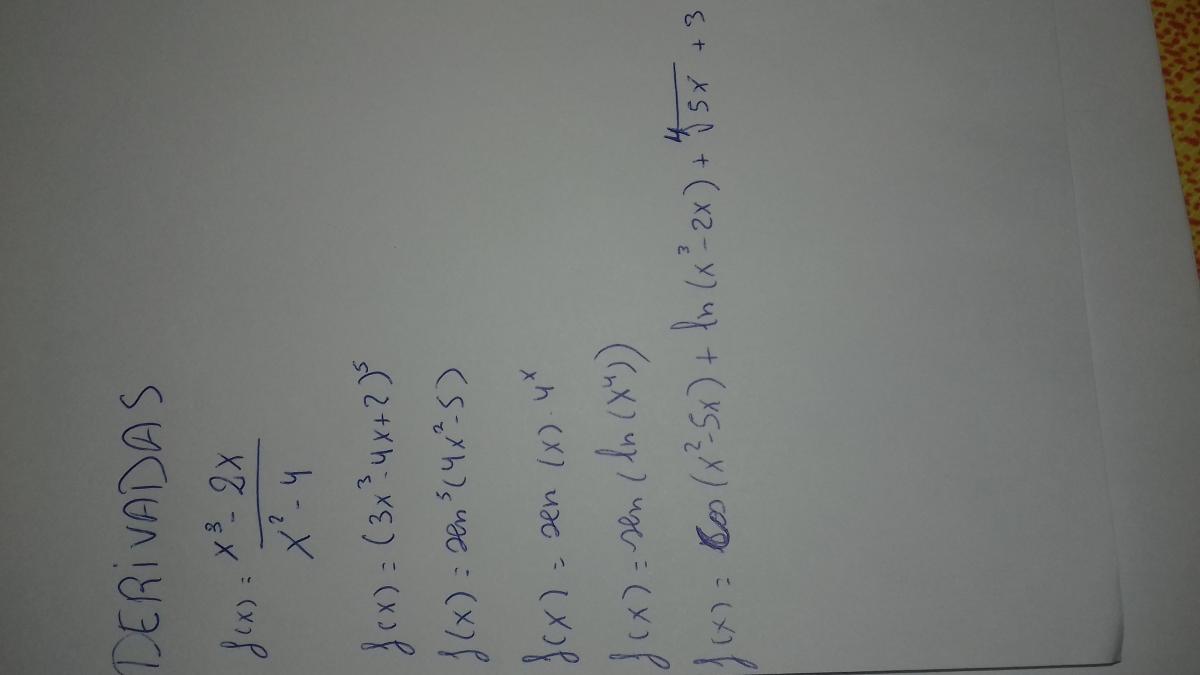 DERIVADAS
f(x) = \frac{x³ - 2x}{x² - 4}
f(x) = (3x³ - 4x + 2)⁵
f(x) = sen⁵(4x² - 5)
f(x) = sen(x) · 4ˣ
f(x) = sen(ln(x⁴))
f(x) = cos(x² - 5x) + ln(x³ - 2x) + ⁴√(5x) + 3